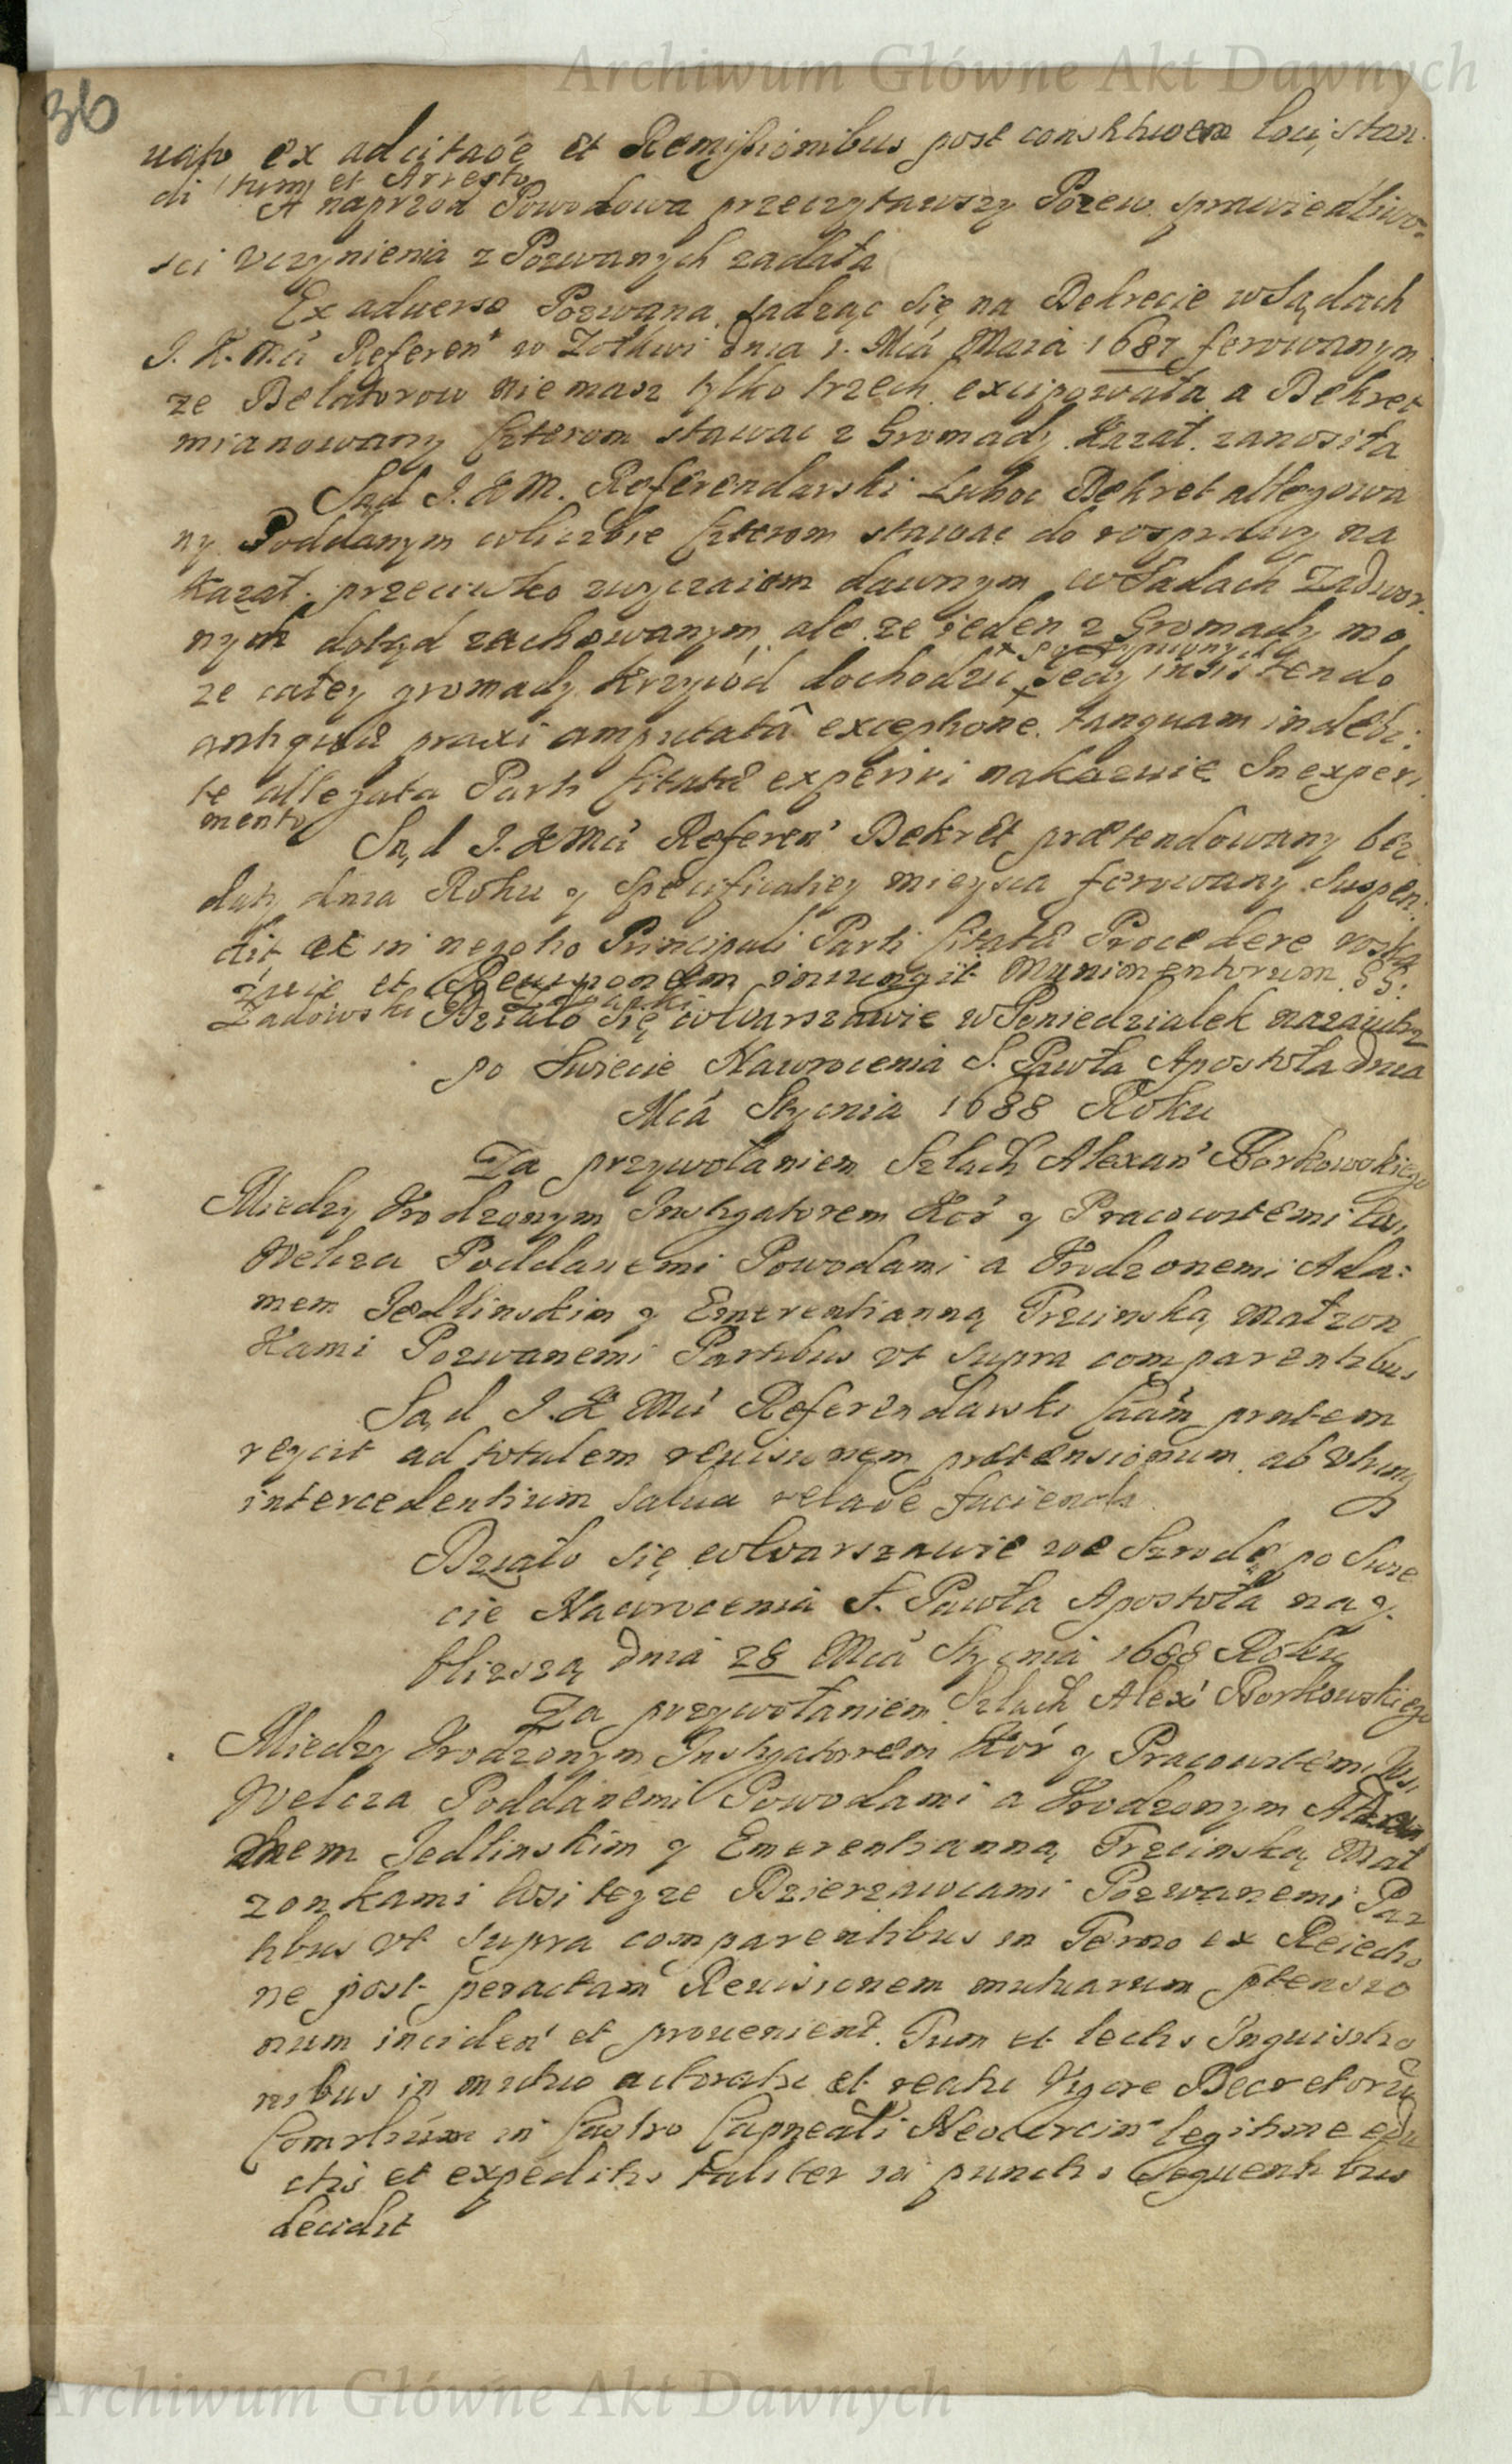 Archiwum Główne Akt Dawnych
36
ex adcitaoē et Remissionibus post loci stan
di et Arresto
A naprzod Powodowa przeczytawszy Pozew sprawiedliwo
sci vczynienia z Pozwanych żadała
Ex aduerso Pozwana sadząc się na Dekrecie w Sądach
J. K. Mći Referen w Zołkwi dnia 1. Mća Maia 1687 ferowanym
ze Delatorow niemasz tylko trzech excypowała a Dekret
mianowany czterom stawac z Gromady kazał zanosiła
Sąd J. K M. Referendarski Luboc Dekret allegowa
ny Poddanym w liczbie czterom stawac do rosprawy na
kazał przeciwko zwyczaiom dawnym w Sadach Zadwor
nych dotąd zachowanym ale ze ieden z Gromady mo
ze całey gromady krzywd dochodzic tedy insistendo
antiquae praxi amputatâ exceptione tanquam indebi
te allegata Parti Citatae experiri nakazuie In experi
mento
Sąd J. K Mći Referen Dekret praetendowany bez
daty dnia Roku y Specificatiey mieysca ferowany Suspen
dit et in negotio Principali Parti Citatae Procedere roska
zuie et iniungit Munimentorum §§.
Zadowski
Działo się w Warszawie w Poniedziałek nazaiutrz
po Swiecie Nawrocenia S. Pawła Apostoła dnia
Mća Stycnia 1688 Roku
Za przywołaniem Szlach Alexan Borkowskiego
Miedzy Vrodzonym Instygatorem Kor y Pracowitemi
Welcza Poddanemi Powodami a Vrodzonemi Ada:
mem Jedlinskim y Emerentianną Trzcinską Małzon
kami Pozwanemi Partibus vt supra comparentibus
Sąd J. K Mći Referendarski Caām prntem
reycit ad totalem reuisionem praetensionum ab vtrinq
intercedentium salua relaoē facienda
Działo się w Warszawie we Szrodę po Swie
cie Nawrocenia S. Pawła Apostoła nay
blizszą dnia 28 Mća Stycnia 1688 Roku
Za przywołaniem Szlach Alex Borkowskiego
Miedzy Vrodzonym Instygatorem Kor y Pracowitemi Wsi
Welcza Poddanemi Powodami a Vrodzonym
mem Jedlinskim y Emerentianną Trzcinską Mał
zonkami Wsi teyze Dzierzawcami Pozwanemi Par
tibus vt supra comparentibus in Termo ex Reiectio
ne post peractam Reuisionem mutuarum ptensio
num inciden et prouenient. Tum et lectis Inquisitio
nibus in mutuo actoratu et reatu Vigore Decretorū
in Castro Capneali Neocorcin legitime edu
ctis et expeditis taliter in punctis sequentibus
decidit
Archiwum Główne Akt Dawnych